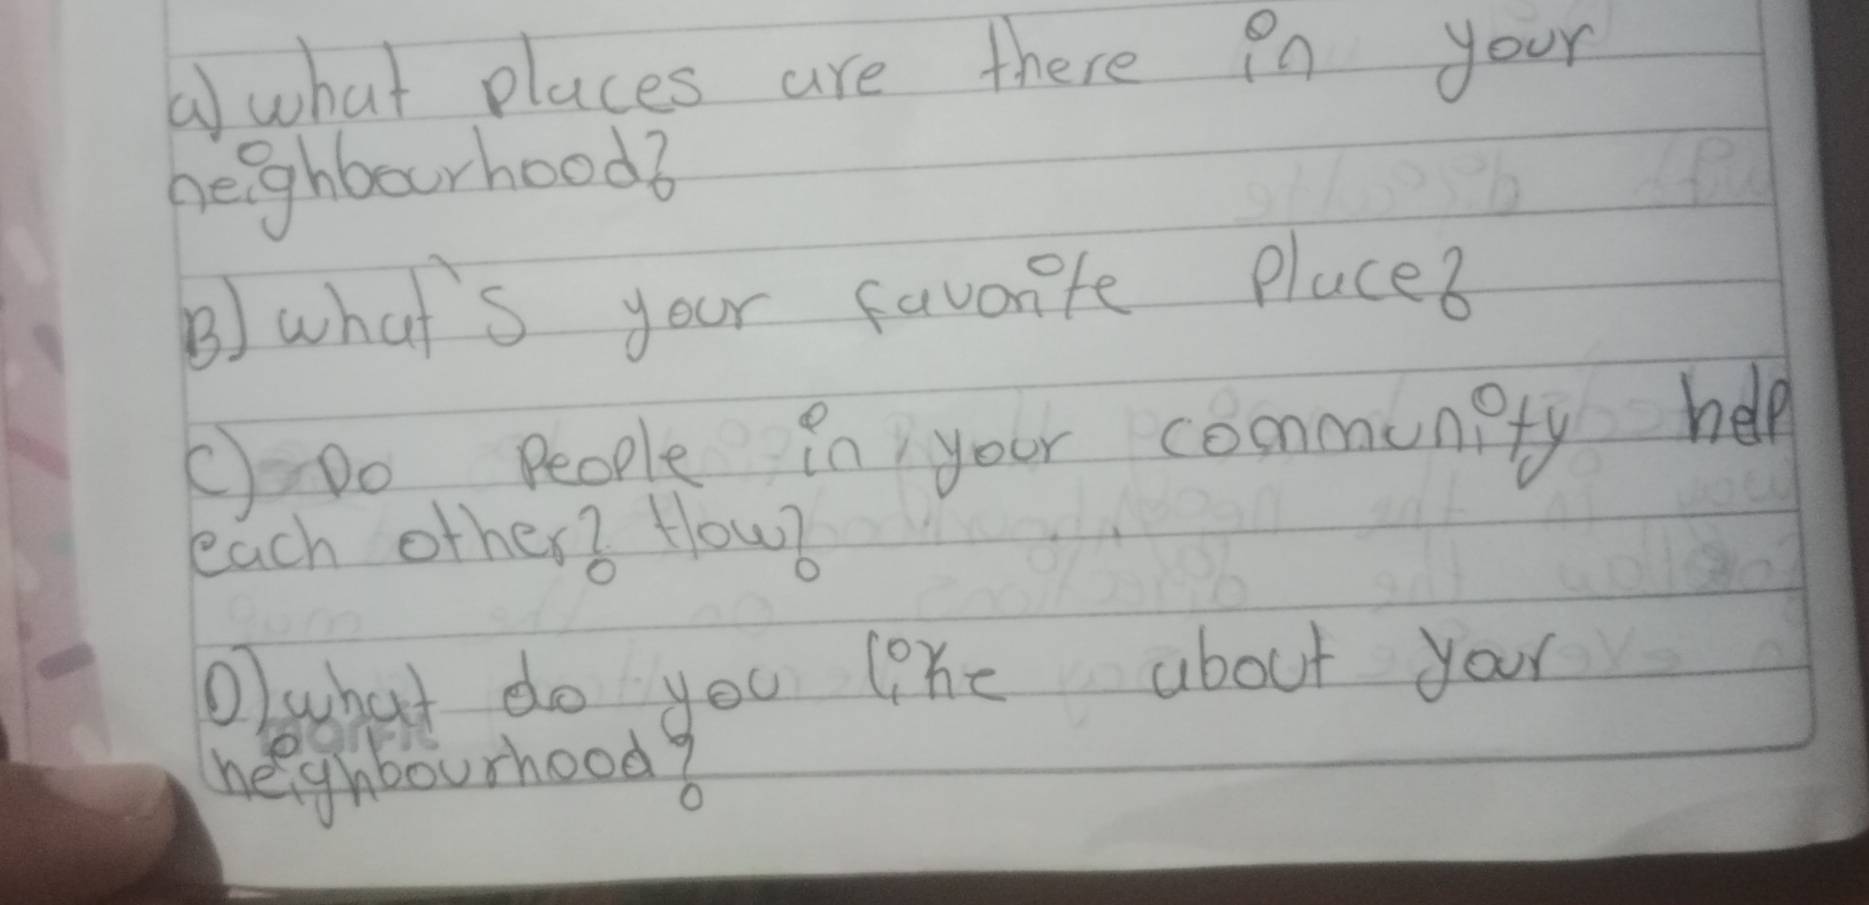 a) what places are there in your
neighbourhood?
B) what's your favorite place?
C) Do people in your community help
each other? How?
D) what do you like about your
neighbourhood?